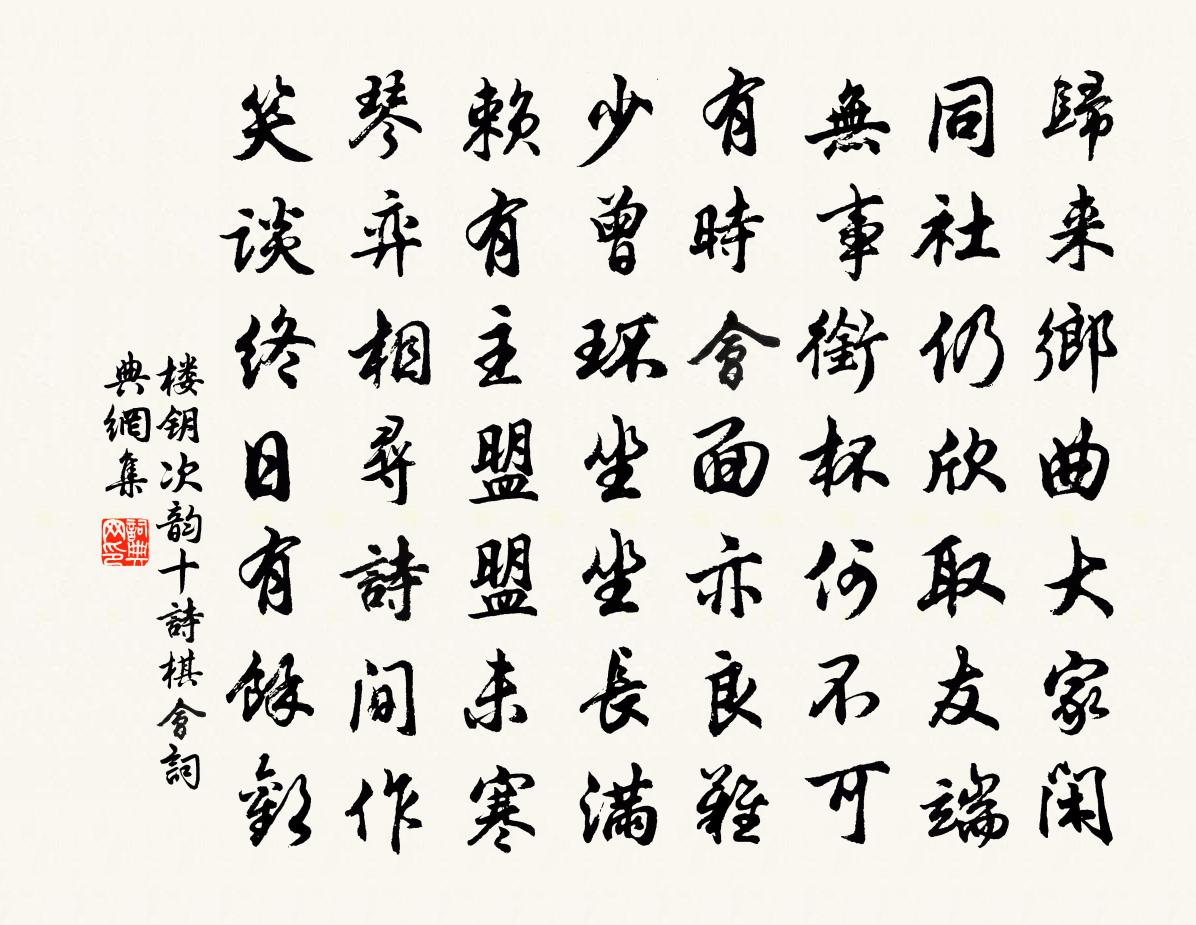 歸来鄉曲大家閑
同社仍欣取友端
無事銜杯何不可
有時會面亦良難
少曾环坐坐長滿
賴有主盟盟未寒
琴弈相尋詩间作
笑談終日有餘歡
楼钥次韵十詩棋會詞
典網集
詞典网印